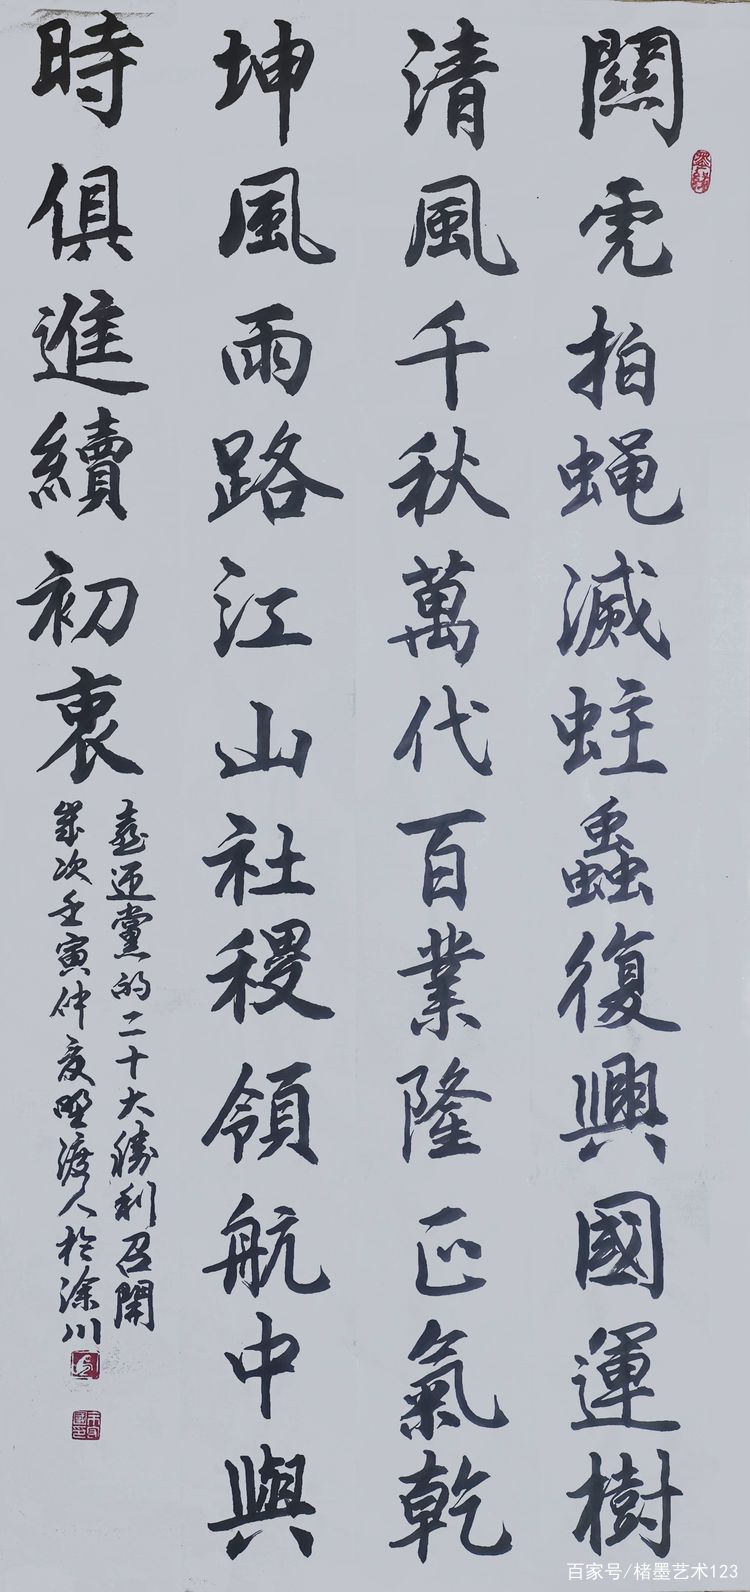 虎拍蝇滅蛀蟲復興國運樹
清風千秋萬代百業隆正氣乾
坤風雨路江山社稷領航中與
時俱進續初衷
喜迎黨的二十大勝利召開
歲次壬寅仲夏野渡人於涂川
百家号/楮墨艺术123